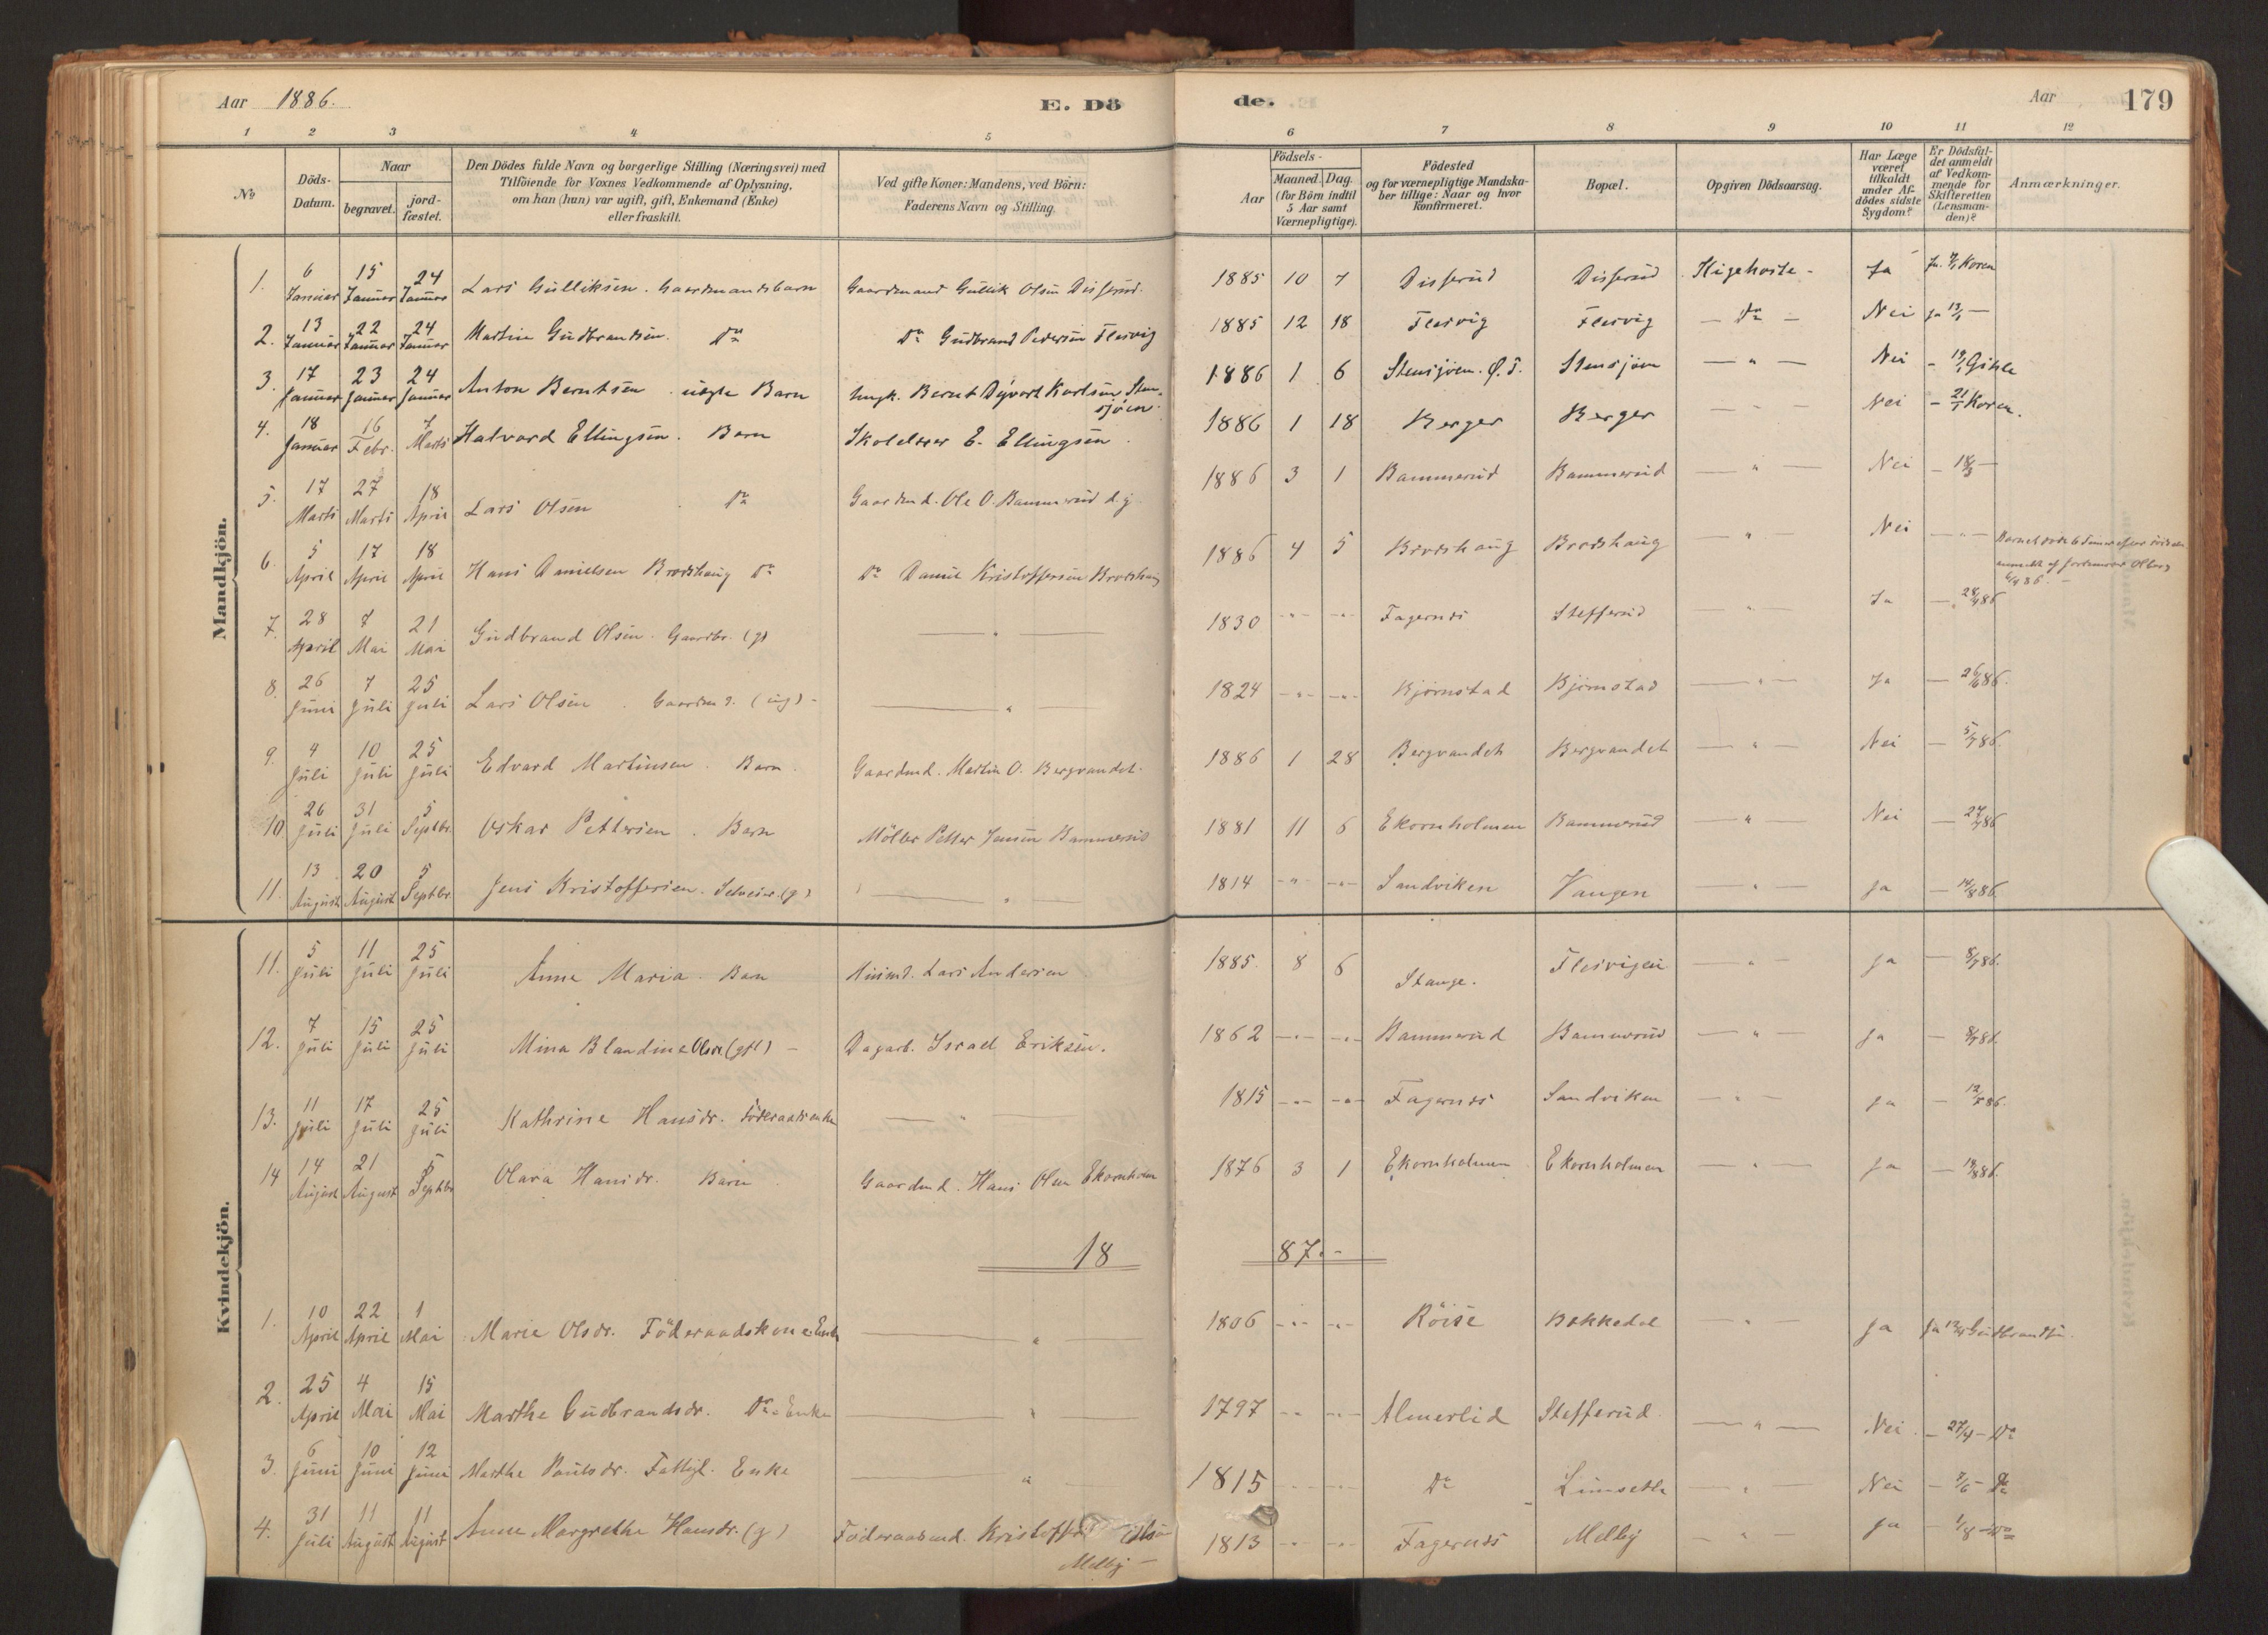 Aar 1886. E. Dö de. Aar 179
1 2 3 4 5 6 7 8 9 10 11 12
No
Döds-Datum.
Naar
begravet.
jord-fæstet.
Den Dödes fulde Navn og borgerlige Stilling (Næringsvei) med
Tilföiende for Voxnes Vedkommende af Oplysning,
om han (hun) var ugift, gift, Enkemand (Enke)
eller fraskilt.
Ved gifte Koner: Mandens, ved Börn:
Faderens Navn og Stilling.
Födsels-
Aar
Maaned. Dag.
(for Börn indtil
5 Aar samt
Værnepligtige).
Födested
og for værnepligtige Mandska-
ber tillige: Naar og hvor
Konfirmeret.
Bopæl.
Opgiven Dödsaarsag.
Har Læge
været
tilkaldt
under Af-
dödes sidste
Sygdom?
Er Dödsfal-
det anmeldt
af Vedkom-
mende for
Skifteretten
(Lensman-
den)?
Anmærkninger.
Mandkjön.
1. 6 Januar 15 Januar 24 Januar Lars Gulliksen. Gaardmandsbarn Gaardmand Gullik Olsen Disserud. 1885 10 7 Disserud Disserud Kigehoste - Ja Ja. 7/1 Koren
2. 13 Januar 22 Januar 24 Januar Martin Gudbrandsen. Do Do Gudbrand Pedersen Flesvig 1885 12 18 Flesvig Flesvig — Do — Nei Ja 13/1 —
3. 17 Januar 23 Januar 24 Januar Anton Berntsen. uægte Barn Ungk. Bernt Dyvart Karlsen Sten-
sjöen. 1886 1 6 Stensjöen. Ö. T. Stensjöen — " — Nei - 19/1 Gihle
4. 18 Januar 16 Febr. 7 Marts Halvard Ellingsen. Barn Skolelærer E. Ellingsen. 1886 1 18 Berger Berger — " — Nei - 21/1 Koren.
5. 17 Marts 27 Marts 18 April Lars Olsen Do Gaardmd. Ole O. Bammerud d.y. 1886 3 1 Bammerud Bammerud — " — Nei - 18/3 —
6. 5 April 17 April 18 April Hans Danielsen Brodshaug Do Do Daniel Kristoffersen Brodshaug 1886 4 5 Brodshaug Brodshaug — " — Nei — " — Barnet döde 6 Timer efter
anmeldt af Jordemor Olberg
6/4 86. —
7. 28 April 7 Mai 21 Mai Gudbrand Olsen. Gaardbr. (g) — " — 1830 -"- -"- Fagernes Stefferud — " — Ja — 28/4 86
8. 26 Juni 7 Juli 25 Juli Lars Olsen. Gaardmd. (ug) - — " — 1824 -"- -"- Björnstad Bjornstad — " — Ja — 26/6 86.
9. 4 Juli 10 Juli 25 Juli Edvard Martinsen. Barn. Gaardmd. Martin O. Bergvandet. 1886 1 28 Bergvandet Bergvandet — " — Nei — 5/7 86.
10. 26 Juli 31 Juli 5 Septbr. Oskar Pettersen. Barn Möller Petter Jensen Bammerud 1881 11 6 Ekornholmen Bammerud — " — Nei — 27/7 86
11. 13 August 20 August 5 Septbr. Jens Kristoffersen. Selveier. (g) — " 1814 -"- -"- Sandviken Vangen — " — Ja — 14/8 86.
Kvindekjön.
11. 5 Juli 11 Juli 25 Juli Anne Maria. Barn Lars Andersen 1885. 8 6 Stange. Flesvigen — " — Ja — 8/7 86.
12. 7 Juli 15 Juli 25 Juli Mina Blandine Olsen (gft) - Dagarb. Israel Eriksen. 1862 -"- -"- Bammerud Bammerud — " — Ja — 8/7 86.
13. 11 Juli 17 Juli 25 Juli Kathrine Hansdr. Föderaadsenke — " 1815 -"- -"- Fagernes Sandviken — " — Ja — 12/7 86.
14 14 August 21 August 5 Septbr Olava Hansdr. Barn Gaardmd. Hans Olsen Ekornholmen 1876 3 1 Ekornholmen Ekornholmen — " — Ja — 19/8 86.
18 87. -
1. 10 April 22 April 1 Mai Marie Olsdr. Föderaadskone Enke — " 1806 -"- -"- Röise Bakkedal — " — Ja Ja 12/4 Gudbrandsen.
2. 25 April 4 Mai 15 Mai Marthe Gudbrandsdr. Do Enke — " — 1797 -"- -"- Almerlid Stefferud — " — Nei. - 27/4 - Do
3. 6 Juni 10 Juni 12 Juni Marthe Paulsdr. Fattigl. Enke — " — 1815 -"- -"- Do Limsetle — " — Nei - 7/6 - Do
4. 31 Juli 11 August 11 August Anne Margrethe Hansdr. (g) Föderaadsmd. Kristoffer Olsen
Melby — 1813 -"- -"- Fagernes Melby — " — Ja - 1/8 - Do